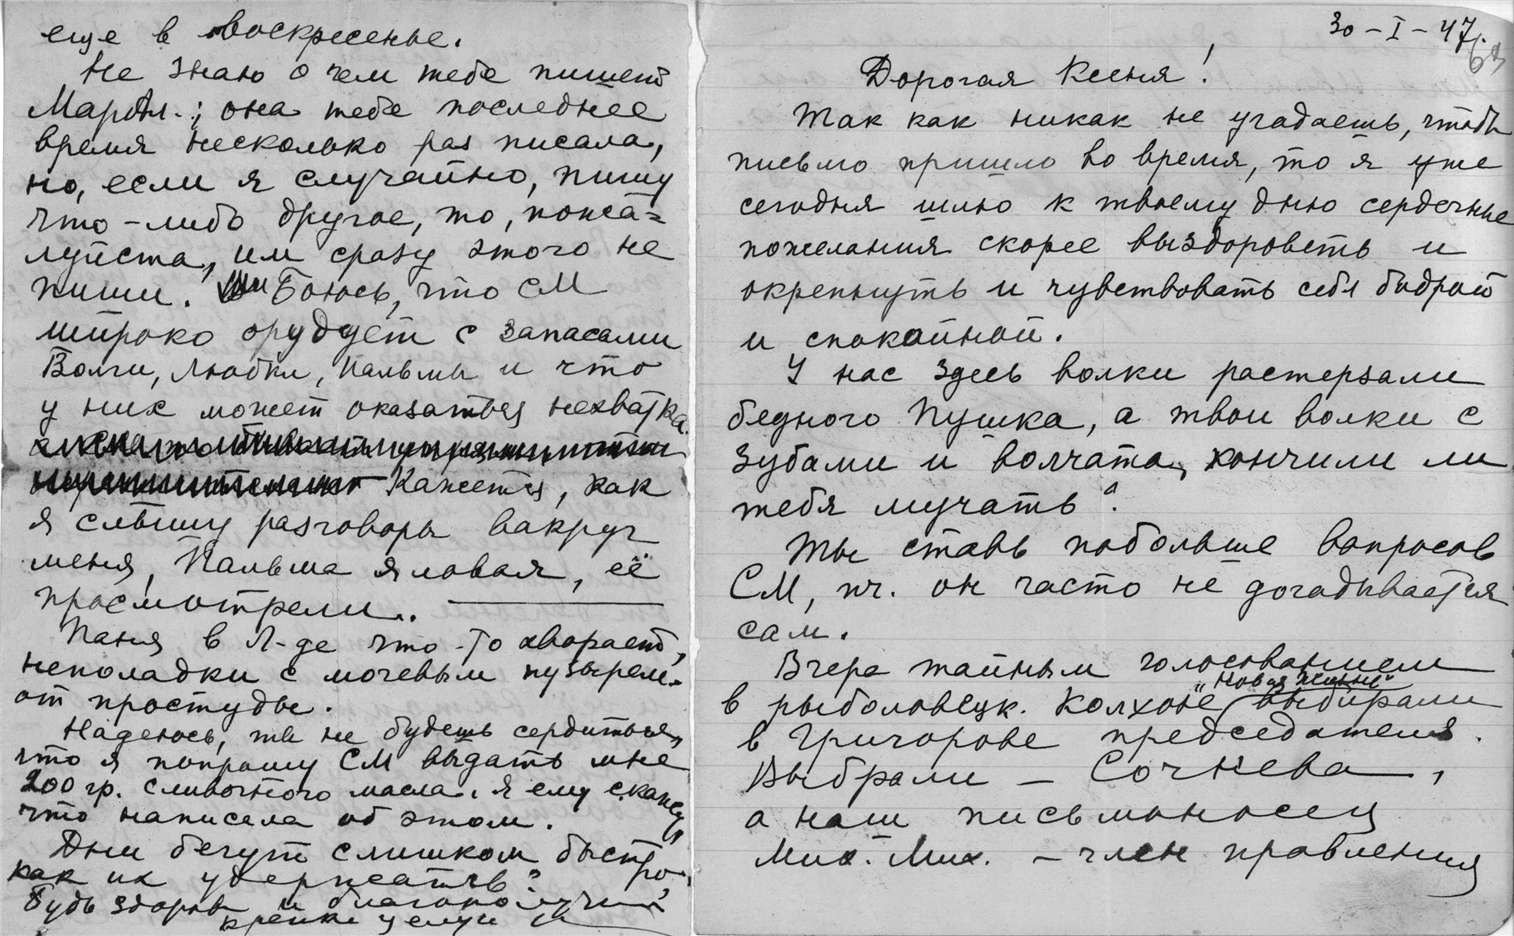 30-I-47.
63
Дорогая Ксеня!
Так как никак не угадаешь, чтобы
письмо пришло во время, то я уже
сегодня шлю к твоему дню сердечные
пожелания скорее выздороветь и
окрепнуть и чувствовать себя бодрой
и спокойной.
У нас здесь волки растерзали
бедного Пушка, а твои волки с
зубами и волчата, кончили ли
тебя мучать?
Ты ставь побольше вопросов
СМ, пч. он часто не догадывается
сам.
Вчера тайным голосованием
в рыболовецк. колхозе "Новая жизнь" выбирали
в Григорове председателя.
Выбрали – Сочнева,
а наш письмоносец
Мих. Мих. – член правления
еще в воскресенье.
Не знаю о чем тебе пишет
; она тебе последнее
время несколько раз писала,
но, если я случайно, пишу
что-либо другое, то, пожа=
луйста, им сразу этого не
пиши. Боюсь, что СМ
широко орудует с запасами
Волги, Любки, Пальмы и что
у них может оказаться нехватка.
Кажется, как
я слышу разговоры вакруг
меня, Пальма яловая, её
просмотрели.
Паня в Л-де что-то хворает,
неполадки с мочевым пузырем
от простуды.
Надеюсь, ты не будешь сердиться,
что я попрошу СМ выдать мне
200 гр. сливочного масла. Я ему скажу
что написала об этом.
Дни бегут слишком быстро,
как их удержать?
Будь здорова и благополучна,
крепко целую